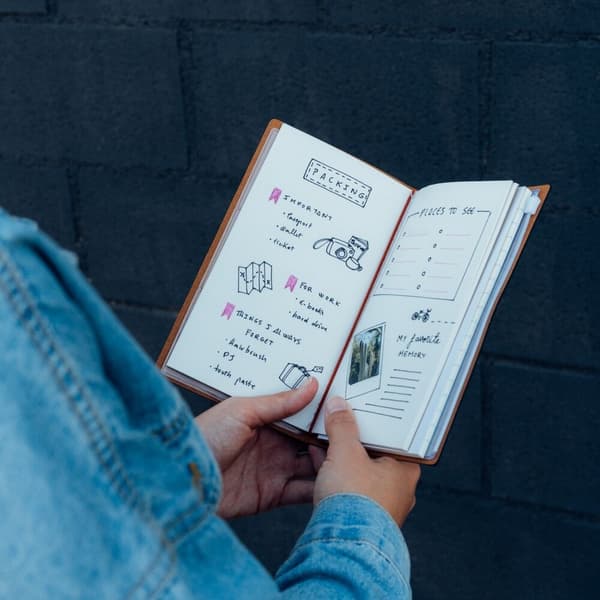 PACKING
IMPORTANT
• Passport
• wallet
• ticket
FOR WORK
• E-books
• hard drive
THINGS I ALWAYS
FORGET
• hairbrush
• PJ
• tooth paste
PLACES TO SEE
MY favorite
MEMORY